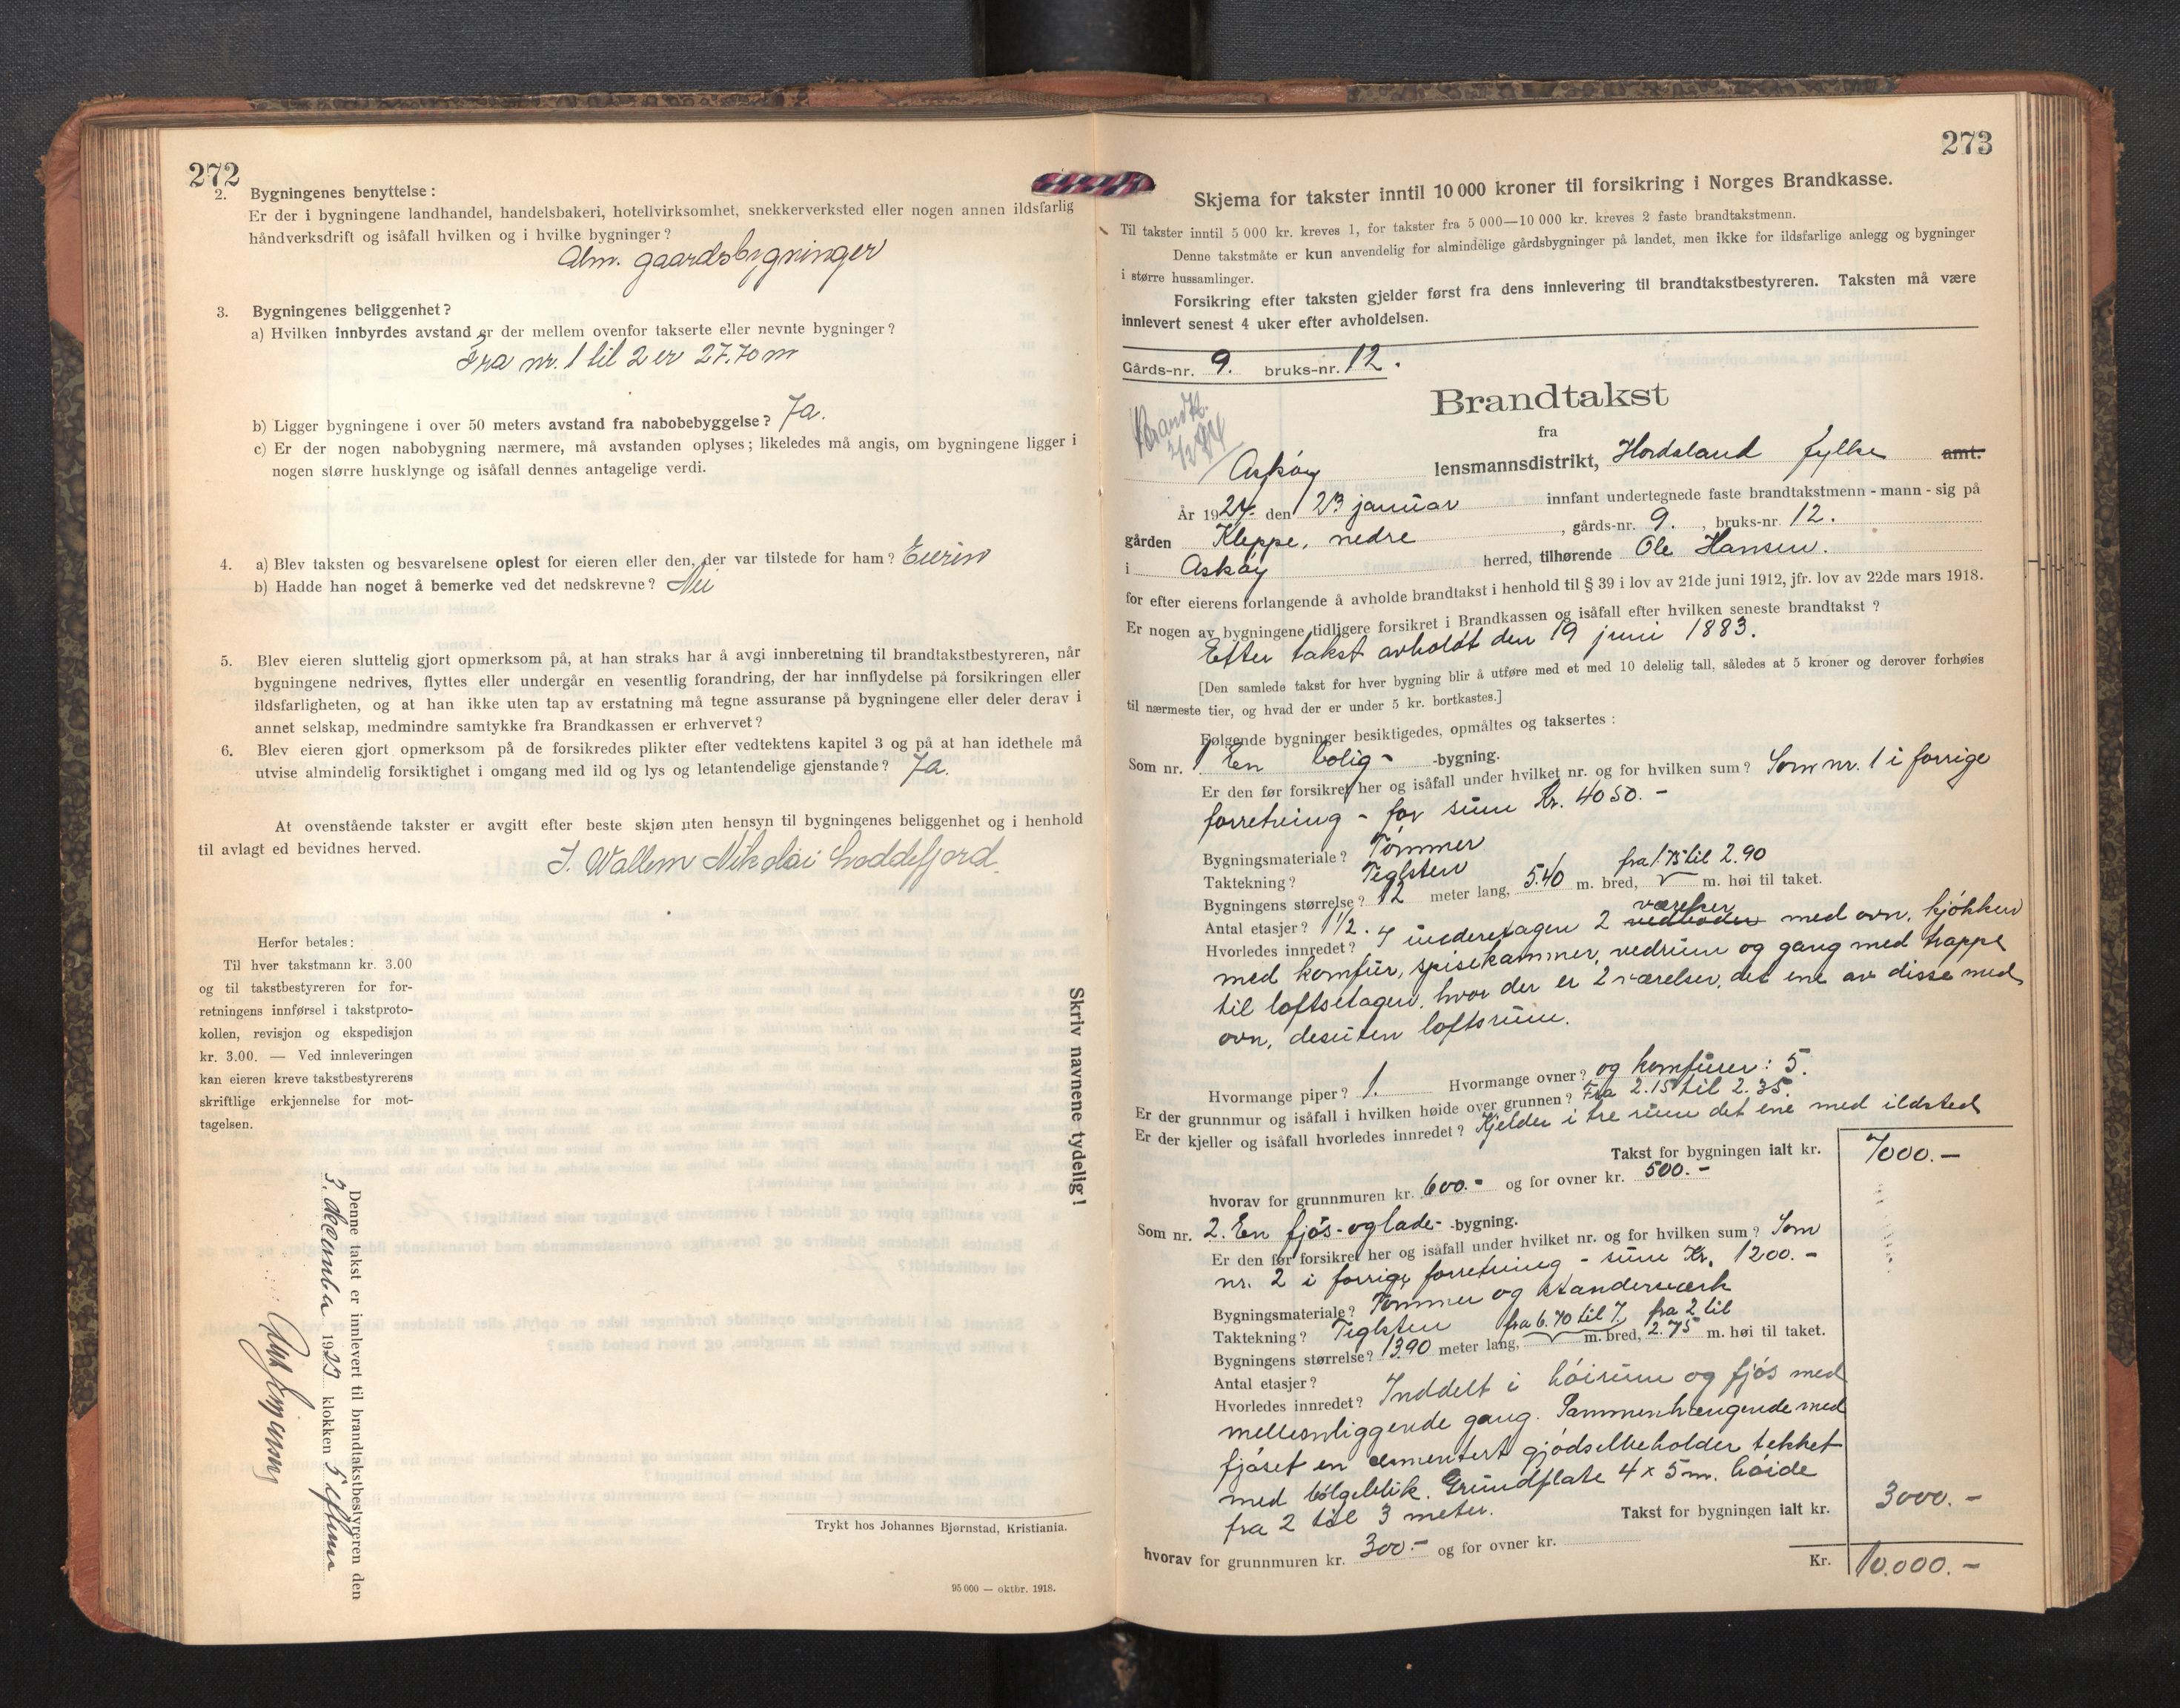 272
2. Bygningenes benyttelse:
Er der i bygningene landhandel, handelsbakeri, hotellvirksomhet, snekkerverksted eller nogen annen ildsfarlig
håndverksdrift og isåfall hvilken og i hvilke bygninger?
Alm. gaardsbygninger
3. Bygningenes beliggenhet?
a) Hvilken innbyrdes avstand er der mellem ovenfor takserte eller nevnte bygninger?
Fra nr. 1 til 2 er 27.70 m
b) Ligger bygningene i over 50 meters avstand fra nabobebyggelse? Ja.
c) Er der nogen nabobygning nærmere, må avstanden oplyses; likeledes må angis, om bygningene ligger i
nogen større husklynge og isåfall dennes antagelige verdi.
4. a) Blev taksten og besvarelsene oplest for eieren eller den, der var tilstede for ham? Eieren
b) Hadde han noget å bemerke ved det nedskrevne? Nei
5. Blev eieren sluttelig gjort opmerksom på, at han straks har å avgi innberetning til brandtakstbestyreren, når
bygningene nedrives, flyttes eller undergår en vesentlig forandring, der har innflydelse på forsikringen eller
ildsfarligheten, og at han ikke uten tap av erstatning må tegne assuranse på bygningene eller deler derav i
annet selskap, medmindre samtykke fra Brandkassen er erhvervet?
6. Blev eieren gjort opmerksom på de forsikredes plikter efter vedtektens kapitel 3 og på at han idethele må
utvise almindelig forsiktighet i omgang med ild og lys og letantendelige gjenstande? Ja.
At ovenstående takster er avgitt efter beste skjøn uten hensyn til bygningenes beliggenhet og i henhold
til avlagt ed bevidnes herved.
J. Wallem Nikolai Loddefjord.
Herfor betales:
Til hver takstmann kr. 3.00
og til takstbestyreren for for-
retningens innførsel i takstproto-
kollen, revisjon og ekspedisjon
kr. 3.00. — Ved innleveringen
kan eieren kreve takstbestyrerens
skriftlige erkjennelse for mot-
tagelsen.
Skriv navnene tydelig!
Denne takst er innlevert til brandtakstbestyreren den
3. december 1925 klokken 5 eftm
Trykt hos Johannes Bjørnstad, Kristiania.
95 000 — oktbr. 1918.
273
Skjema for takster inntil 10 000 kroner til forsikring i Norges Brandkasse.
Til takster inntil 5 000 kr. kreves 1, for takster fra 5 000—10 000 kr. kreves 2 faste brandtakstmenn.
Denne takstmåte er kun anvendelig for almindelige gårdsbygninger på landet, men ikke for ildsfarlige anlegg og bygninger
i større hussamlinger.
Forsikring efter taksten gjelder først fra dens innlevering til brandtakstbestyreren. Taksten må være
innlevert senest 4 uker efter avholdelsen.
Gårds-nr. 9. bruks-nr. 12.
Brandtakst
fra
Askøy lensmannsdistrikt, Hordaland fylke amt.
År 1924. den 23 januar innfant undertegnede faste brandtakstmenn - mann - sig på
gården Kleppe, nedre, gårds-nr. 9., bruks-nr. 12.
i Askøy herred, tilhørende Ole Hansen.
for efter eierens forlangende å avholde brandtakst i henhold til § 39 i lov av 21de juni 1912, jfr. lov av 22de mars 1918.
Er nogen av bygningene tidligere forsikret i Brandkassen og isåfall efter hvilken seneste brandtakst?
Efter takst avholdt den 19 juni 1883.
[Den samlede takst for hver bygning blir å utføre med et med 10 delelig tall, således at 5 kroner og derover forhøies
til nærmeste tier, og hvad der er under 5 kr. bortkastes.]
Følgende bygninger besiktigedes, opmåltes og taksertes:
Som nr. 1 En bolig- -bygning.
Er den før forsikret her og isåfall under hvilket nr. og for hvilken sum? Som nr. 1 i forrige
forretning - for sum Kr. 4050.-
Bygningsmateriale? Tømmer
Taktekning? Teglsten
fra 1.75 til 2.90
Bygningens størrelse? 12 meter lang, 5.40 m. bred, m. høi til taket.
Antal etasjer? 1 1/2.
Hvorledes innredet? I underetagen 2 vedboder værelser med ovn, kjøkken
med komfur, spisekammer, vedrum og gang med trappe
til loftsetagen, hvor der er 2 værelser, det ene av disse med
ovn, desuten loftsrum.
Hvormange piper? 1. Hvormange ovner? og komfurer: 5.
Er der grunnmur og isåfall i hvilken høide over grunnen? Fra 2.15 til 2.35.
Er der kjeller og isåfall hvorledes innredet? Kjelder i tre rum det ene med ildsted
Takst for bygningen ialt kr. 7000.-
hvorav for grunnmuren kr. 600.- og for ovner kr. 500.-
Som nr. 2. En fjøs-og lade- -bygning.
Er den før forsikret her og isåfall under hvilket nr. og for hvilken sum? Som
nr. 2 i forrige forretning - sum Kr. 1200.-
Bygningsmateriale? Tømmer og standerværk
Taktekning? Teglsten fra 6.70 til 7. fra 2 til
Bygningens størrelse? 13.90 meter lang, m. bred, 2.75 m. høi til taket.
Antal etasjer?
Hvorledes innredet? Inddelt i høirum og fjøs med
mellemliggende gang. Sammenhængende med
fjøset en cementert gjødselbeholder tekket
med bølgeblik. Grundflate 4 x 5 m. høide
fra 2 til 3 meter.
Takst for bygningen ialt kr. 3000.-
hvorav for grunnmuren kr. 300.- og for ovner kr.
Kr. 10.000.-